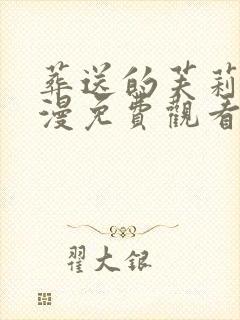 葬送的芙莉
漫免費觀看
翟大銀